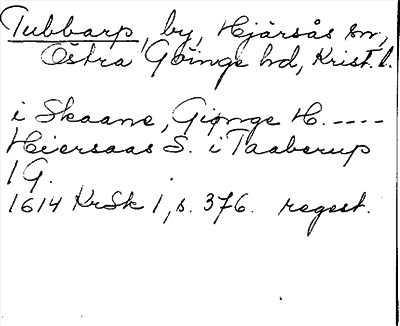 Tubbarp, by, Hjärsås sn,
Östra Göinge hd, Krist. l.
i Skaane, Giønge H. ----
Heiersaas S. i Taaberup
1 G.
1614 KrSk 1, s. 376. regest.